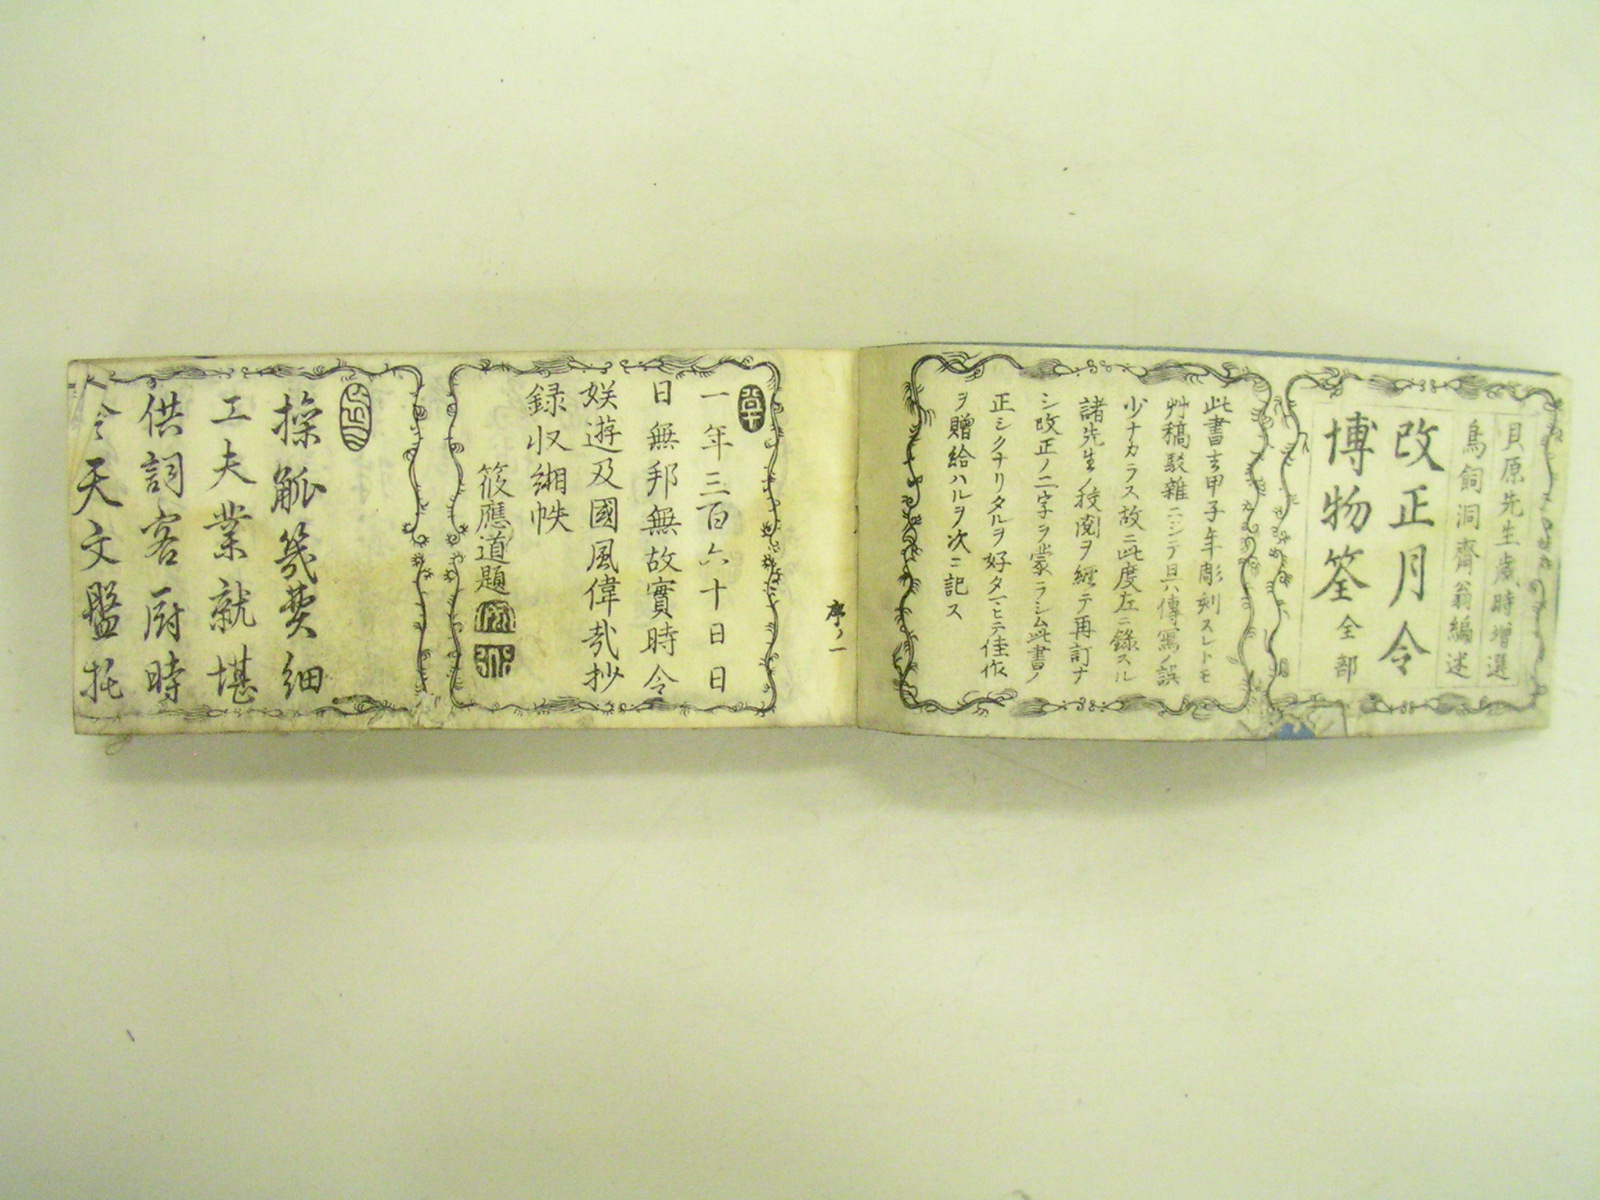 貝原先生歳時増選
鳥飼洞齋翁編述
改正月令
博物筌 全部
此書去甲子年彫刻スレトモ
艸稿駁雜ニシテ且ハ傳寫ノ誤
少ナカラス故ニ此度左ニ錄スル
諸先生ノ挍閲ヲ經テ再訂ナ
シ改正ノ二字ヲ蒙ラシム此書ノ
正シクナリタルヲ好タマヒテ佳作
ヲ贈給ハルヲ次ニ記ス
序ノ一
一年三百六十日日
日無邦無故實時令
娯遊及國風偉哉抄
録収緗帙
筱應道題
操觚幾費細
工夫業就堪
供詞客厨時
令天文盤托